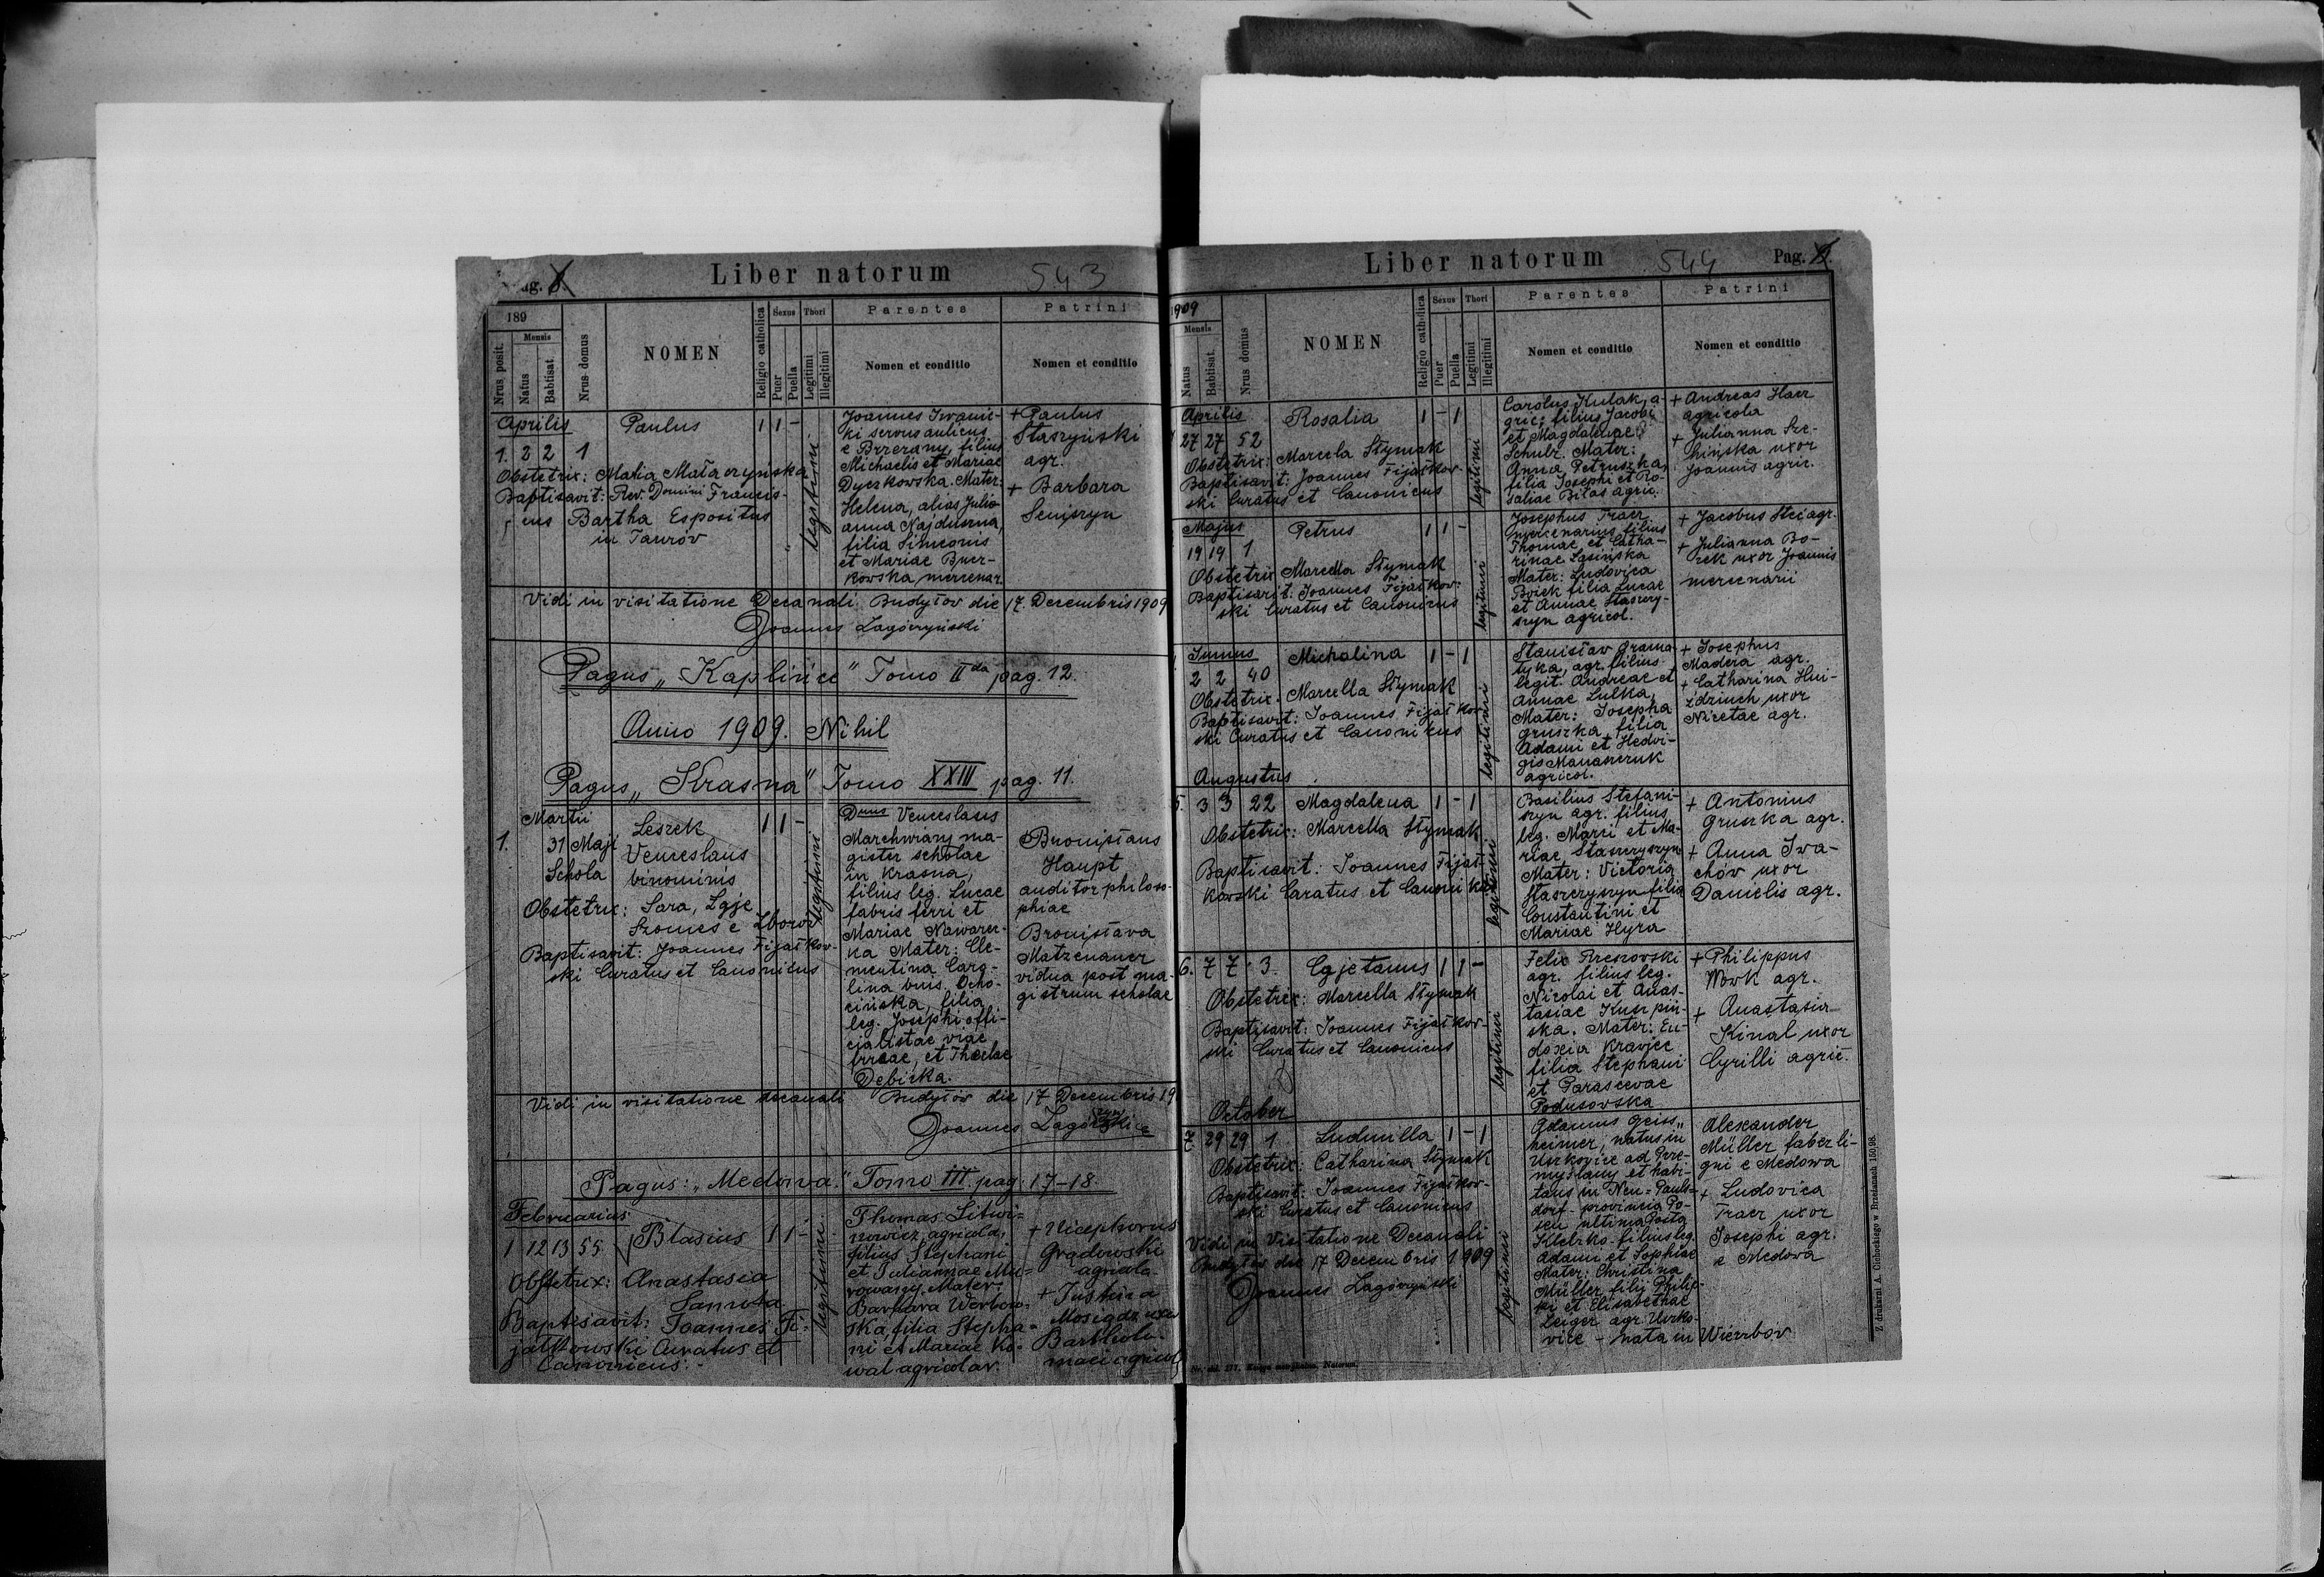 Liber natorum 543
189
Mensis
Nrus posit.
Natus
Babtisat.
Nrus domus
NOMEN
Religio catholica
Sexus
Puer
Puella
Thori
Legitimi
Illegitimi
Parentes
Nomen et conditio
Patrini
Nomen et conditio
Aprilis
1. 3 2 1
Paulus 1 1 -
Obstetrix: Maria
Baptisavit: Rev. Domini Francis-
cus Bartha Expositus
in Taurów
legitimi
Joannes Iwanic-
ki servus aulicus
e Brzezany, filius
Michaelis et Mariae
Dyczkowska. Mater:
Helena, alias Julia
anna Najduszna,
filia Simeonis
et Mariae Bucz-
kowska mercenar.
+ Paulus
Staszyński
agr.
+ Barbara
Seniszyn
Vidi in visitatione Decanali Budyłov die 17. Decembris 1909
Joannes Zagórzyński
Pagus „Kaplińce" Tomo II da pag. 12.
Anno 1909. Nihil
Pagus „Krasna" Tomo XXIII pag. 11.
Martii
1. 31 Maji
Schola
Leszek
Venceslaus
binominis
1 1 -
Obstetrix: Sara,
Szomes e Zborów
Baptisavit: Joannes Fijałkow-
ski Curatus et Canonicus
legitimi
Dnus Venceslaus
Marchwiany ma-
gister scholae
in Krasna,
filius leg. Lucae
fabris ferri et
Mariae Nawarec-
ka Mater: Cle-
mentina Caro-
lina bins. Ocho-
cińska, filia
leg. Josephi offi-
cialistae viae
ferreae, et Theclae
Debicka.
Bronislaus
Haupt
auditor philoso-
phiae
Bronislava
Matzenauer
vidua post ma-
gistrum scholae
Vidi in visitatione decanali Budyłów die 17 Decembris 19
Joannes
Pagus: „Medowa." Tomo III. pag. 17-18.
Februarius
1 12 13 55 Blasius 1 1 -
Obstetrix: Anastasia
Sanuta
Baptisavit: Joannes Fi-
jałkowski Curatus et
Canonicus.
legitimi
Thomas Litwi-
nowicz, agricola,
filius Stephani
et Juliannae Mu-
rowany. Mater:
Barbara Werbow-
ska, filia Stepha-
ni et Mariae Ko-
wal agricolar.
+ Nicephorus
Grądowski
agricola
+ Justina
Mosiądz uxor
Bartholo-
maei agricol
Liber natorum 544 Pag.
1909
Mensis
Natus
Babtisat.
Nrus domus
NOMEN
Religio catholica
Sexus
Puer
Puella
Thori
Legitimi
Illegitimi
Parentes
Nomen et conditio
Patrini
Nomen et conditio
Aprilis
27 27 52
Rosalia 1 - 1
Obstetrix: Marcela Stymak
Baptisavit: Joannes Fijałkow-
ski Curatus et Canonicus
legitimi
Carolus Kulak, a-
gric; filius Jacobi
et Magdalenae
Schulz. Mater:
Anna Petruszka,
filia Josephi et Ro-
saliae Bilas agric.
+ Andreas Haer
agricola
+ Julianna Sze-
hińska uxor
Joannis agric.
Majus
19 19 1
Petrus 1 1 -
Obstetrix Marcella Stymak
Baptisavit: Joannes Fijałkow-
ski Curatus et Canonicus
legitimi
Josephus Traer
mercenarius filius
Thomae et Catha-
rinae Lasińska
Mater: Ludovica
Bojek filia Lucae
et Annae Staszczy-
szyn agricol.
+ Jacobus Stec agr.
+ Julianna Bo-
rek uxor Joannis
mercenarii
Junius
2 2 40
Michalina 1 - 1
Obstetrix: Marcella Stymak
Baptisavit: Joannes Fijałkow-
ski Curatus et Canonicus
legitimi
Stanislav Grama-
tyka, agr. filius
legit. Andreae et
Annae Lulka,
Mater: Josepha
Gruszka, filia
Adami et Hedvi-
gis Manaszczuk
agricol.
+ Josephus
Madera agr.
+ Catharina Hni-
zdziuch uxor
Nicetae agr.
Augustus
5. 3 3 22 Magdalena 1 - 1
Obstetrix: Marcella Stymak
Baptisavit: Joannes Fijał-
kowski Curatus et Canonicus
legitimi
Basilius Stefani-
szyn agr. filius
leg. Marci et Ma-
riae Staszczyszyn
Mater: Victoria
Staszczyszyn filia
Constantini et
Mariae Hyra
+ Antonius
Gruszka agr.
+ Anna Iwa-
chów uxor
Danielis agr.
6. 7 7 3. Cajetanus 1 1 -
Obstetrix: Marcella Stymak
Baptisavit: Joannes Fijałkow-
ski Curatus et Canonicus
legitimi
Felix Rzeszovski
agr. filius leg.
Nicolai et Anas-
tasiae Kuszpiń-
ska. Mater: Eu-
doxia Krawiec
filia Stephani
et Parascevae
Podusovska
+ Philippus
Wowk agr.
+ Anastasia
Kinal uxor
Cyrilli agric.
October
7. 29 29 1 Ludmilla 1 - 1
Obstetrix: Catharina Stymak
Baptisavit: Joannes Fijałkow-
ski Curatus et Canonicus
legitimi
Adamus Geiss„
heimer, natus in
Unrkovice ad Prze-
myslany et habi-
tans in Neu-Pauls-
dorf - provincia Po-
sen ultima Posta
Kletzko - filius leg.
Adami et Sophiae
Mater: Christina
Müller filij Philip-
ki et Elisabethae
Leiger agr.
vice - nata in Wierzbov
Alexander
Müller faber li-
gni e Medowa
+ Ludovica
Traer uxor
Josephi agr.
e Medowa
Vidi in Visitatione Decanali
Budyłów die 17 Decembris 1909
Joannes Zagórzyński
Z drukarni A. Cichockiego w Brzeżanach 150.98.